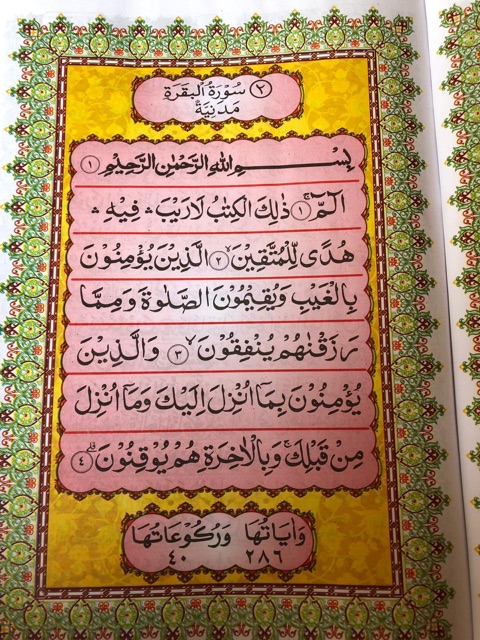 ٢ سُوْرَةُ الْبَقَرَةِ
مَدَنِيَّةٌ
بِسْمِ اللّٰهِ الرَّحْمٰنِ الرَّحِيْمِ ١
الٓمّٓ ۚ ١ ذٰلِكَ الْكِتٰبُ لَا رَيْبَ ۛ فِيْهِ ۛ
هُدًى لِّلْمُتَّقِيْنَ ۙ ٢ الَّذِيْنَ يُؤْمِنُوْنَ
بِالْغَيْبِ وَيُقِيْمُوْنَ الصَّلٰوةَ وَمِمَّا
رَزَقْنٰهُمْ يُنْفِقُوْنَ ۙ ٣ وَالَّذِيْنَ
يُؤْمِنُوْنَ بِمَآ اُنْزِلَ اِلَيْكَ وَمَآ اُنْزِلَ
مِنْ قَبْلِكَ ۚ وَبِالْاٰخِرَةِ هُمْ يُوْقِنُوْنَ ۗ ٤
وَاٰيَاتُهَا وَرُكُوْعَاتُهَا
٢٨٦ ٤٠